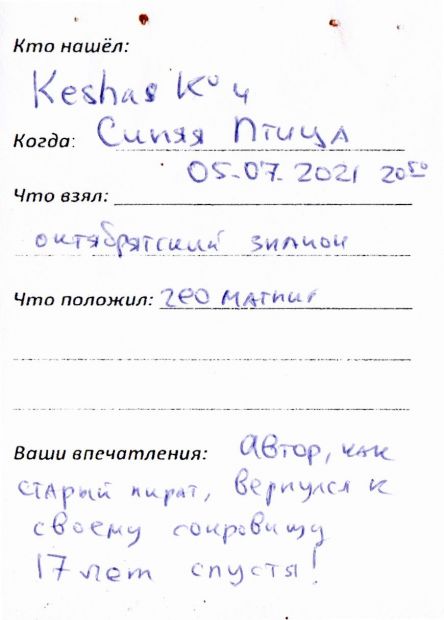 Кто нашёл:
Keshas Ko и
Когда: Синяя Птица
05-07-2021 20 50
Что взял:
октябрятский
Что положил: гео магнит
Ваши впечатления: Автор, как
старый пират, вернулся к
своему сокровищу
17 лет спустя!